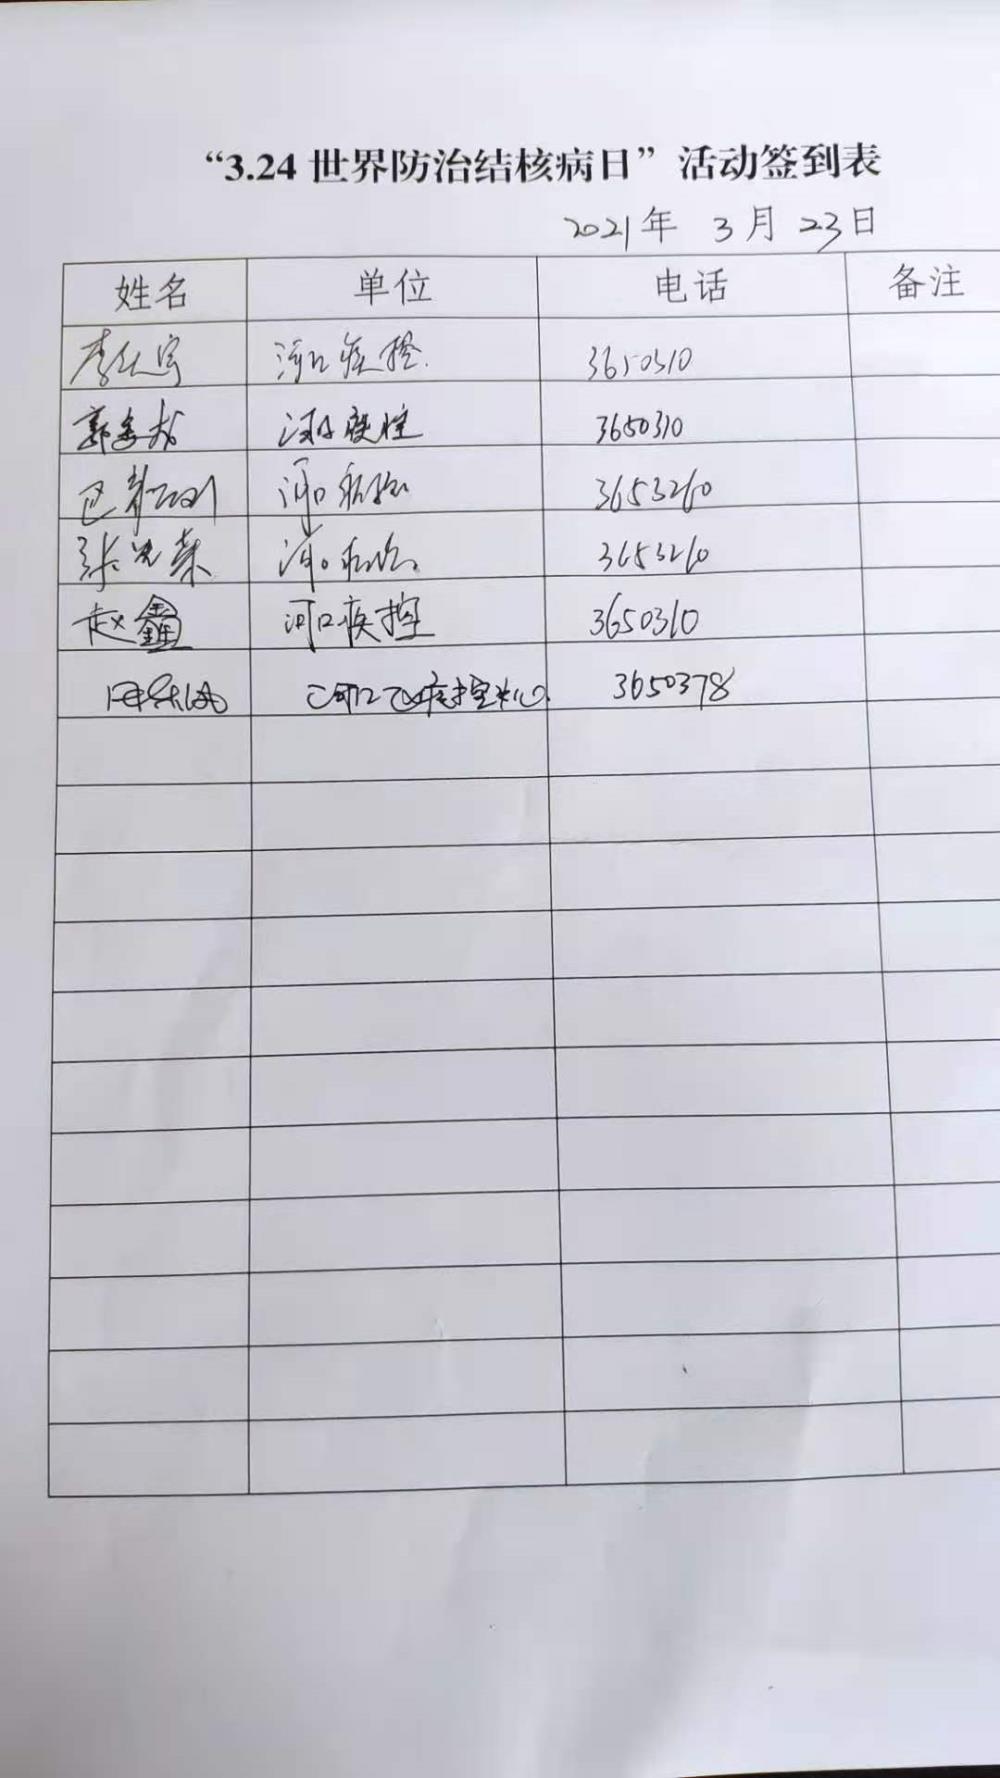 “3.24 世界防治结核病日”活动签到表
2021年 3月 23日
姓名 单位 电话 备注
李 河口疾控. 3650310
郭 河口疾控 3650310
巴 河口疾控 3653260
张 荣 河口疾控 3653260
赵鑫 河口疾控 3650310
河口区疾病控中心 3650378